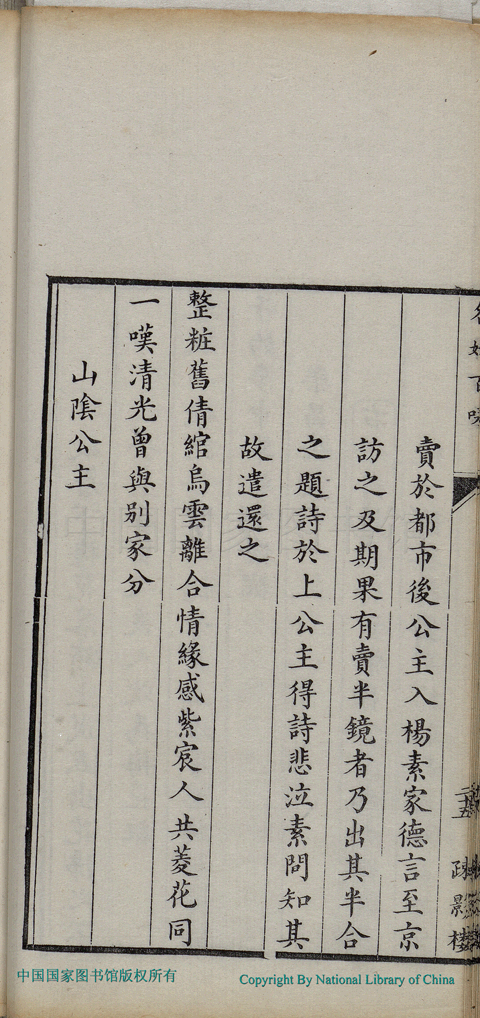 賣於都市後公主入楊素家德言至京
訪之及期果有賣半鏡者乃出其半合
之題詩於上公主得詩悲泣素問知其
故遣還之
整粧舊倩綰烏雲離合情緣感紫宸人共菱花同
一嘆清光曾與别家分
山陰公主
中国国家图书馆版权所有
Copyright By National Library of China